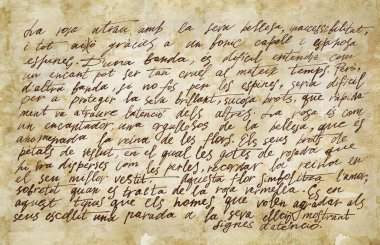 La rosa atrau amb la seva bellesa, inaccessibilitat,
i tot això gràcies a un bonic capoll i espinosa
espines. D'una banda, és difícil entendre com
un encant pot ser tan cruel al mateix temps, però,
d'altra banda, si no fos per les espines, seria difícil
per a protegir la seva brillant, sucosa brots, que ràpida
ment va atraure l'atenció dels altres. La rosa és com
un encantador, una orgullosa de la bellesa, que és
anomenada la reina de les flors. Els seus brots de
pètals de vellut, en el qual les gotes de rosada que
hi ha disperses com les perles, recorden la reina en
el seu millor vestit. Aquesta flor simbolitza l'amor,
sobretot quan es tracta de la rosa vermella. És en
aquest tipus que els homes que volen agradar als
seus escollit una vegada a la seva elecció, mostrant
signes d'atenció.